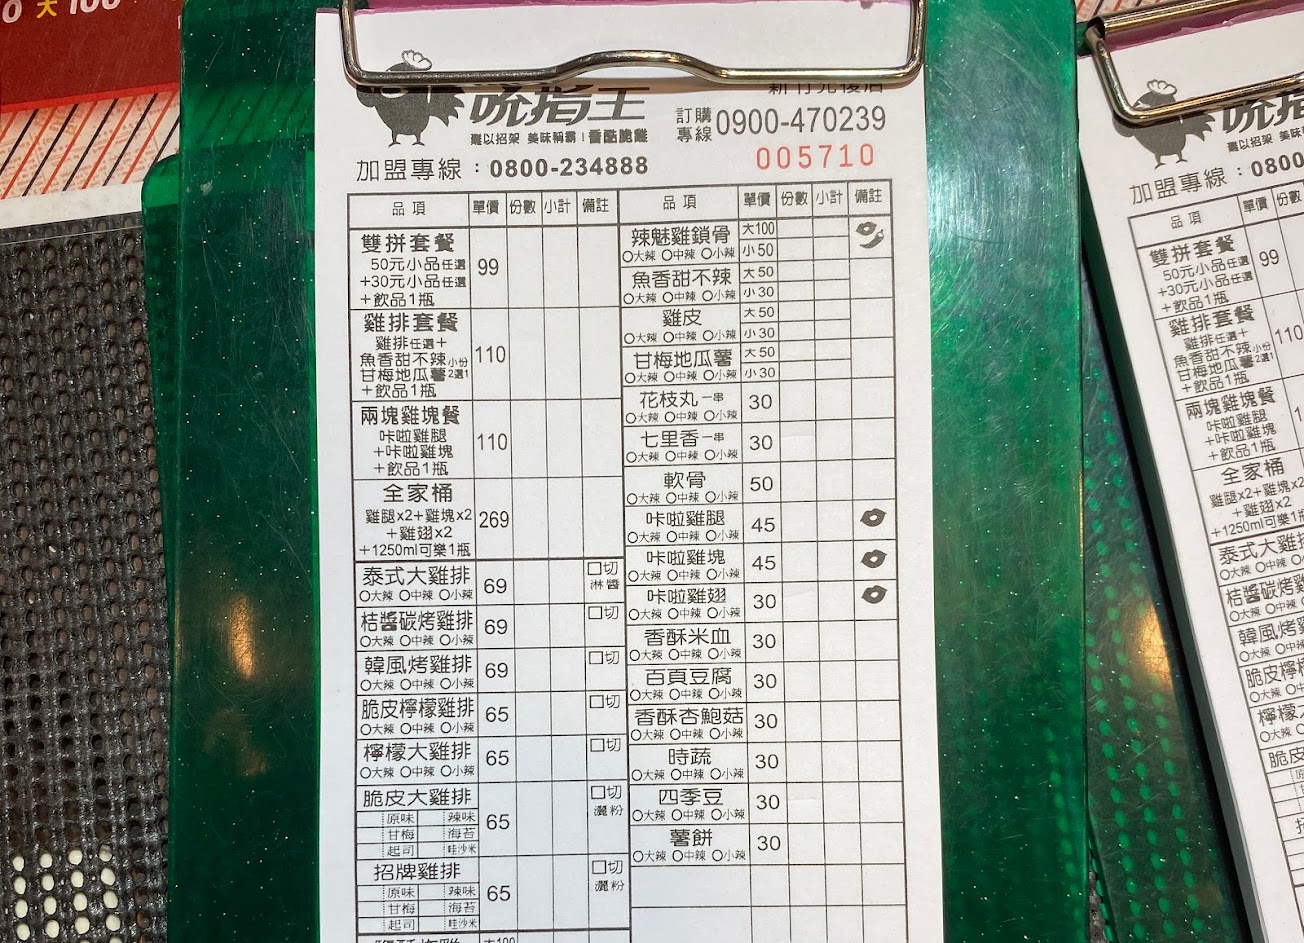 大 100
吮指王
新竹光復店
訂購專線 0900-470239
雞以招架 美味稱霸 | 香酷脆雞
005710
加盟專線：0800-234888
品項 單價 份數 小計 備註
雙拼套餐
50元小品任選
+30元小品任選
+飲品1瓶
99
雞排套餐
雞排任選+
魚香甜不辣小份
甘梅地瓜薯2選1
+飲品1瓶
110
兩塊雞塊餐
咔啦雞腿
+咔啦雞塊
+飲品1瓶
110
全家桶
雞腿x2+雞塊x2
+雞翅x2
+1250ml可樂1瓶
269
泰式大雞排 69 □切
○大辣 ○中辣 ○小辣 淋醬
桔醬碳烤雞排 69 □切
○大辣 ○中辣 ○小辣
韓風烤雞排 69 □切
○大辣 ○中辣 ○小辣
脆皮檸檬雞排 65 □切
○大辣 ○中辣 ○小辣
檸檬大雞排 65 □切
○大辣 ○中辣 ○小辣
脆皮大雞排 65 □切
原味 辣味 灑粉
甘梅 海苔
起司 哇沙米
招牌雞排 65 □切
原味 辣味 灑粉
甘梅 海苔
起司 哇沙米
大100
品項 單價 份數 小計 備註
辣魅雞鎖骨 大100
○大辣 ○中辣 ○小辣 小50
魚香甜不辣 大50
○大辣 ○中辣 ○小辣 小30
雞皮 大50
○大辣 ○中辣 ○小辣 小30
甘梅地瓜薯 大50
○大辣 ○中辣 ○小辣 小30
花枝丸一串 30
○大辣 ○中辣 ○小辣
七里香一串 30
○大辣 ○中辣 ○小辣
軟骨 50
○大辣 ○中辣 ○小辣
咔啦雞腿 45
○大辣 ○中辣 ○小辣
咔啦雞塊 45
○大辣 ○中辣 ○小辣
咔啦雞翅 30
○大辣 ○中辣 ○小辣
香酥米血 30
○大辣 ○中辣 ○小辣
百頁豆腐 30
○大辣 ○中辣 ○小辣
香酥杏鮑菇 30
○大辣 ○中辣 ○小辣
時蔬 30
○大辣 ○中辣 ○小辣
四季豆 30
○大辣 ○中辣 ○小辣
薯餅 30
○大辣 ○中辣 ○小辣
吮指
雞以招架 美味稱霸
加盟專線：0800
品項 單價 份數
雙拼套餐
50元小品任選
+30元小品任選
+飲品1瓶
99
雞排套餐
雞排任選+
魚香甜不辣小份
甘梅地瓜薯2選1
+飲品1瓶
110
兩塊雞塊餐
咔啦雞腿
+咔啦雞塊
+飲品1瓶
全家桶
雞腿x2+雞塊x2
+雞翅x2
+1250ml可樂1瓶
泰式大雞排
○大辣 ○中辣 ○小辣
桔醬碳烤雞
○大辣 ○中辣
韓風烤雞
○大辣 ○中辣
脆皮檸檬
○大辣 ○中辣
檸檬大
○大辣
脆皮